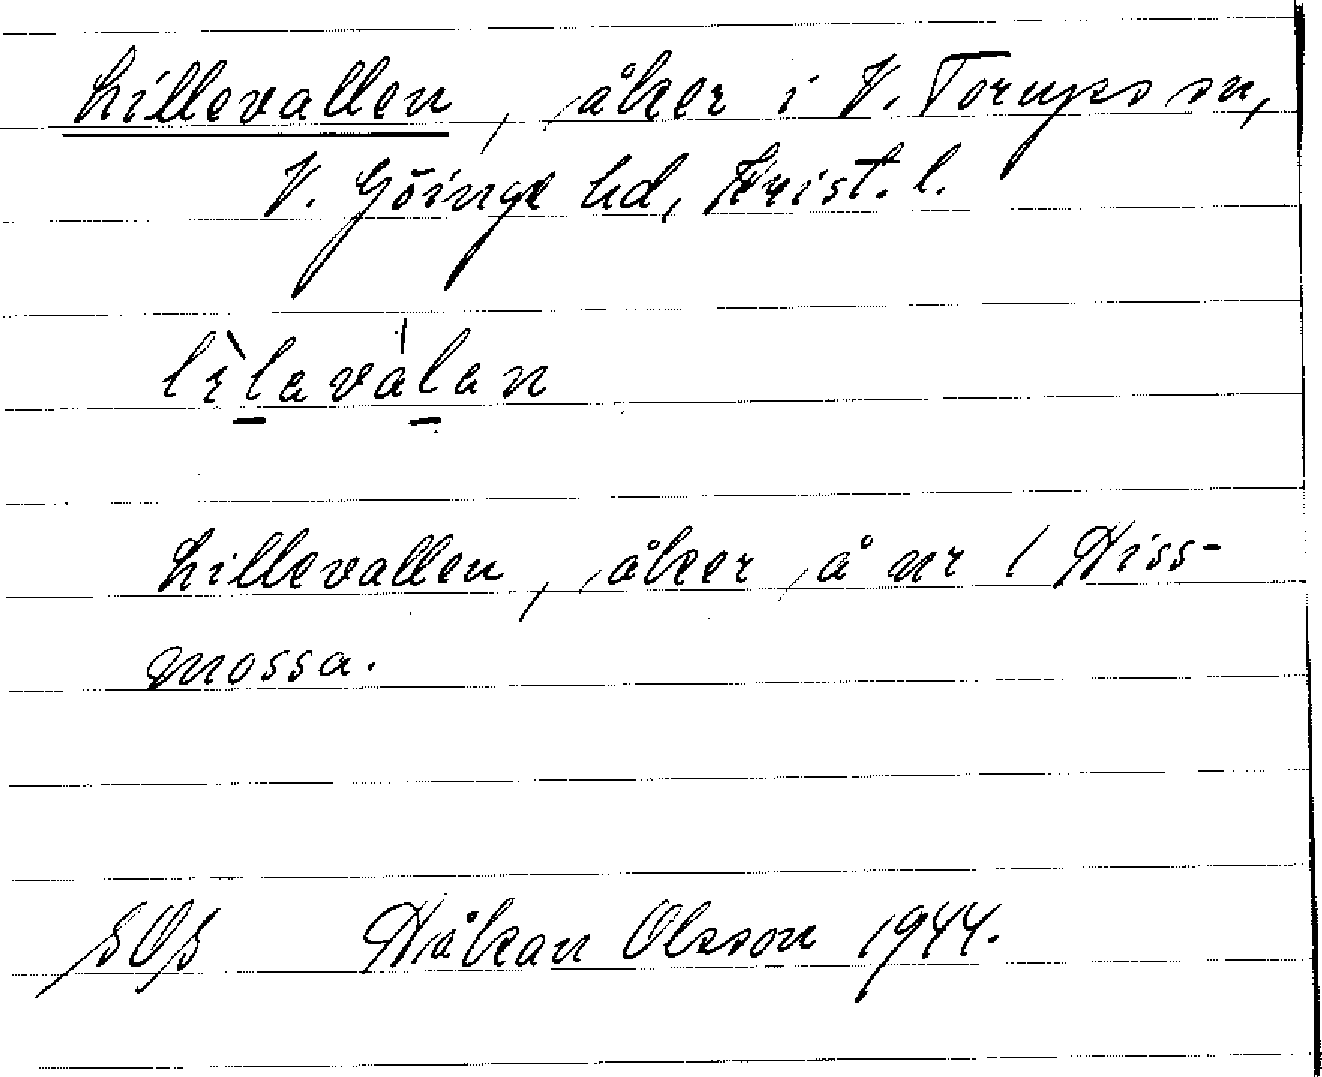 Lillevallen, åker i V. Torups sn,
V. Göinge hd, Krist. l.
lìlaválan
Lillevallen, åker å nr 1 Hiss-
mossa.
Håkan Olsson 1944.